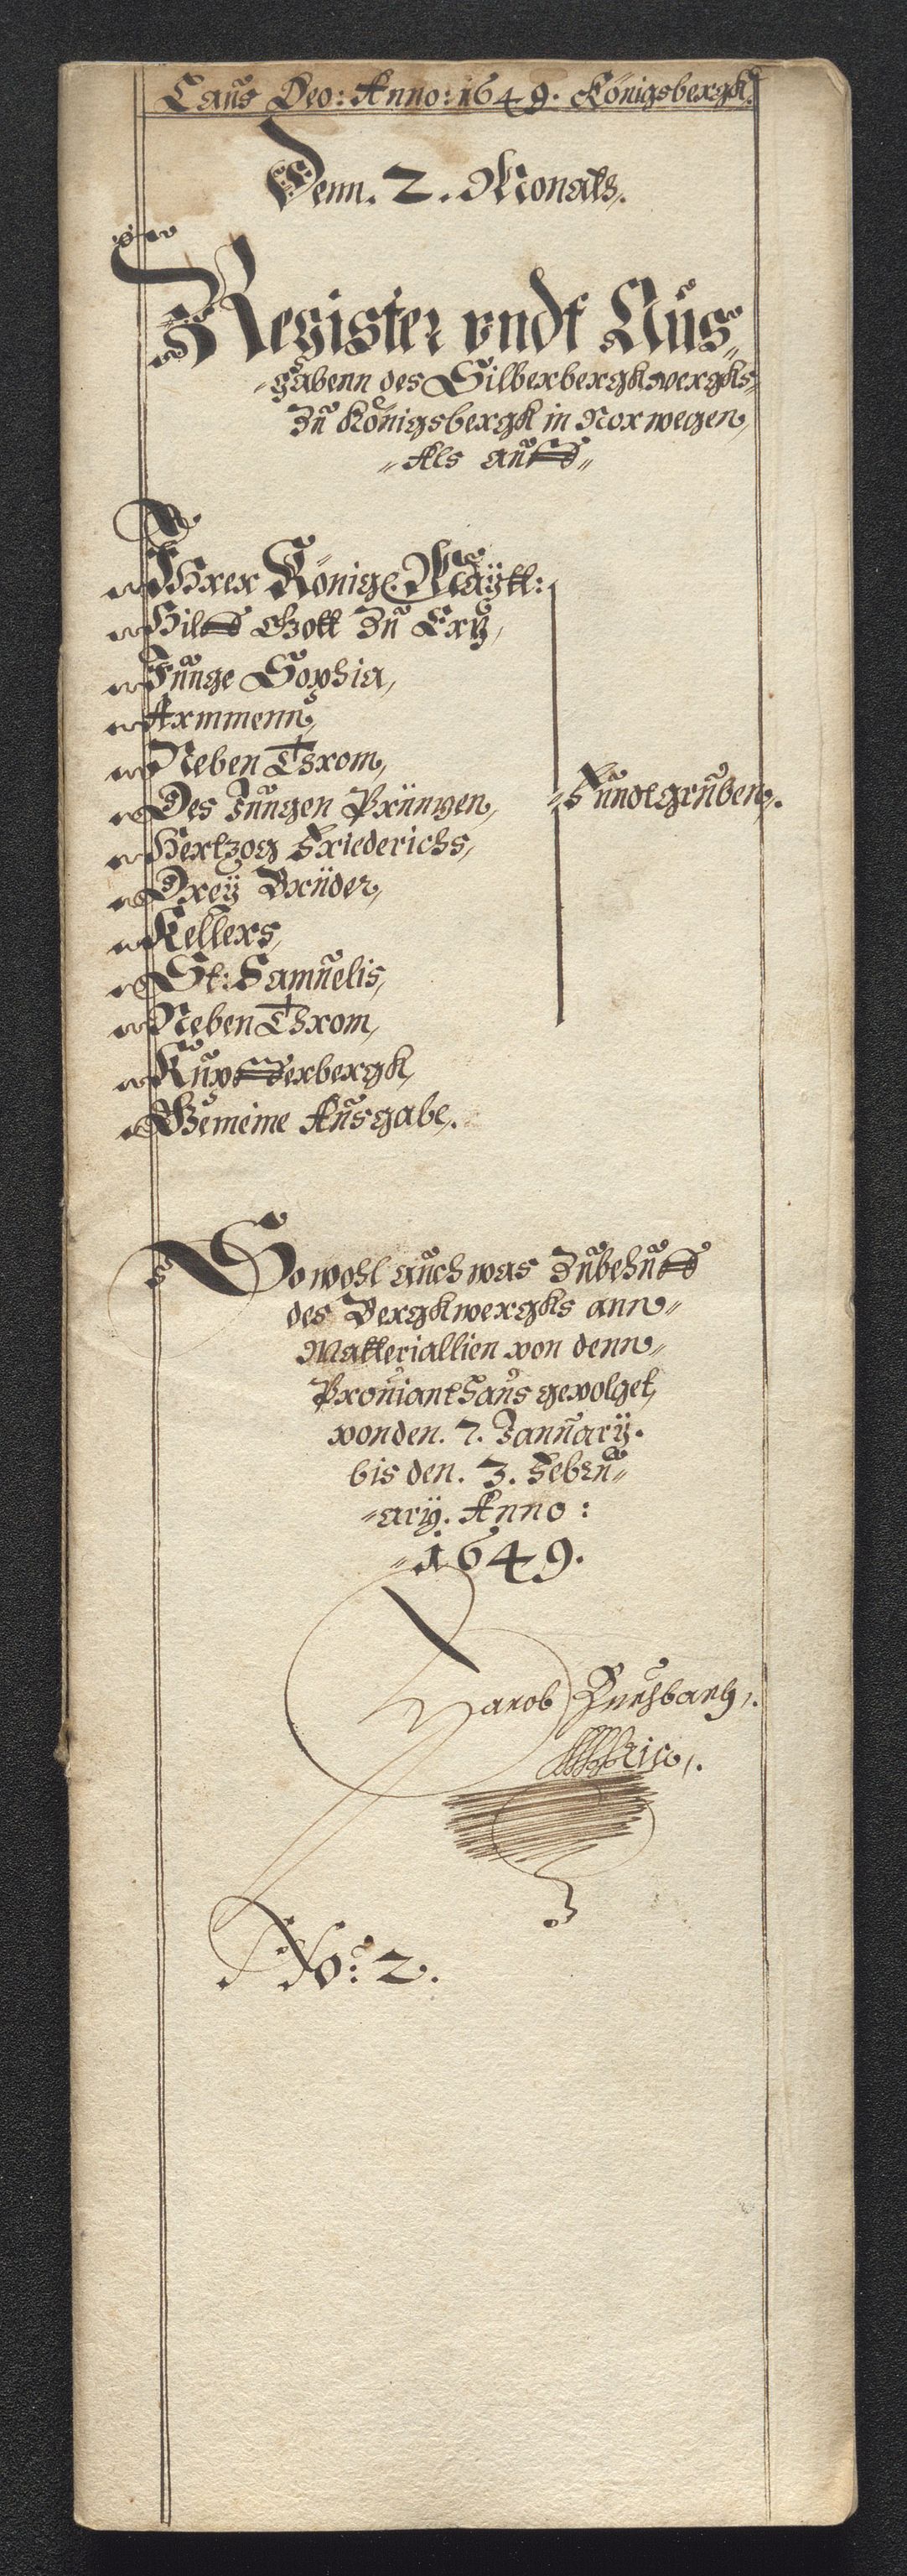 Laus Deo: Anno: 1649. Königsbergk.
Denn. 2. Monats,.
Register vndt Aus„
„gabenn des Silberbergkwergks„
Zu Königsbergk in Norwegen,
„Als auff„
Ihrer Königl: Maÿtt:
Hilff Gott Zu Ertz,
Junge Sophia,
Armmenn,
Neben Throm,
Des Jungen Printzen,
„Fundtgruben,.
Hertzog Friederichs,
Dreÿ Brüder,
Kellers,
St: Samuelis,
Neben Throm,
Kupfferbergk,
Gemeine Ausgabe,.
So wohl auch was Zubehuff
des Bergkwergks ann„
Matteriallien von denn„
Prouianthaus gevolget,
von den. 7. January.
bis den. 3. Febru„
„arÿ. Anno:
„1649.
Jacob
No: 2.